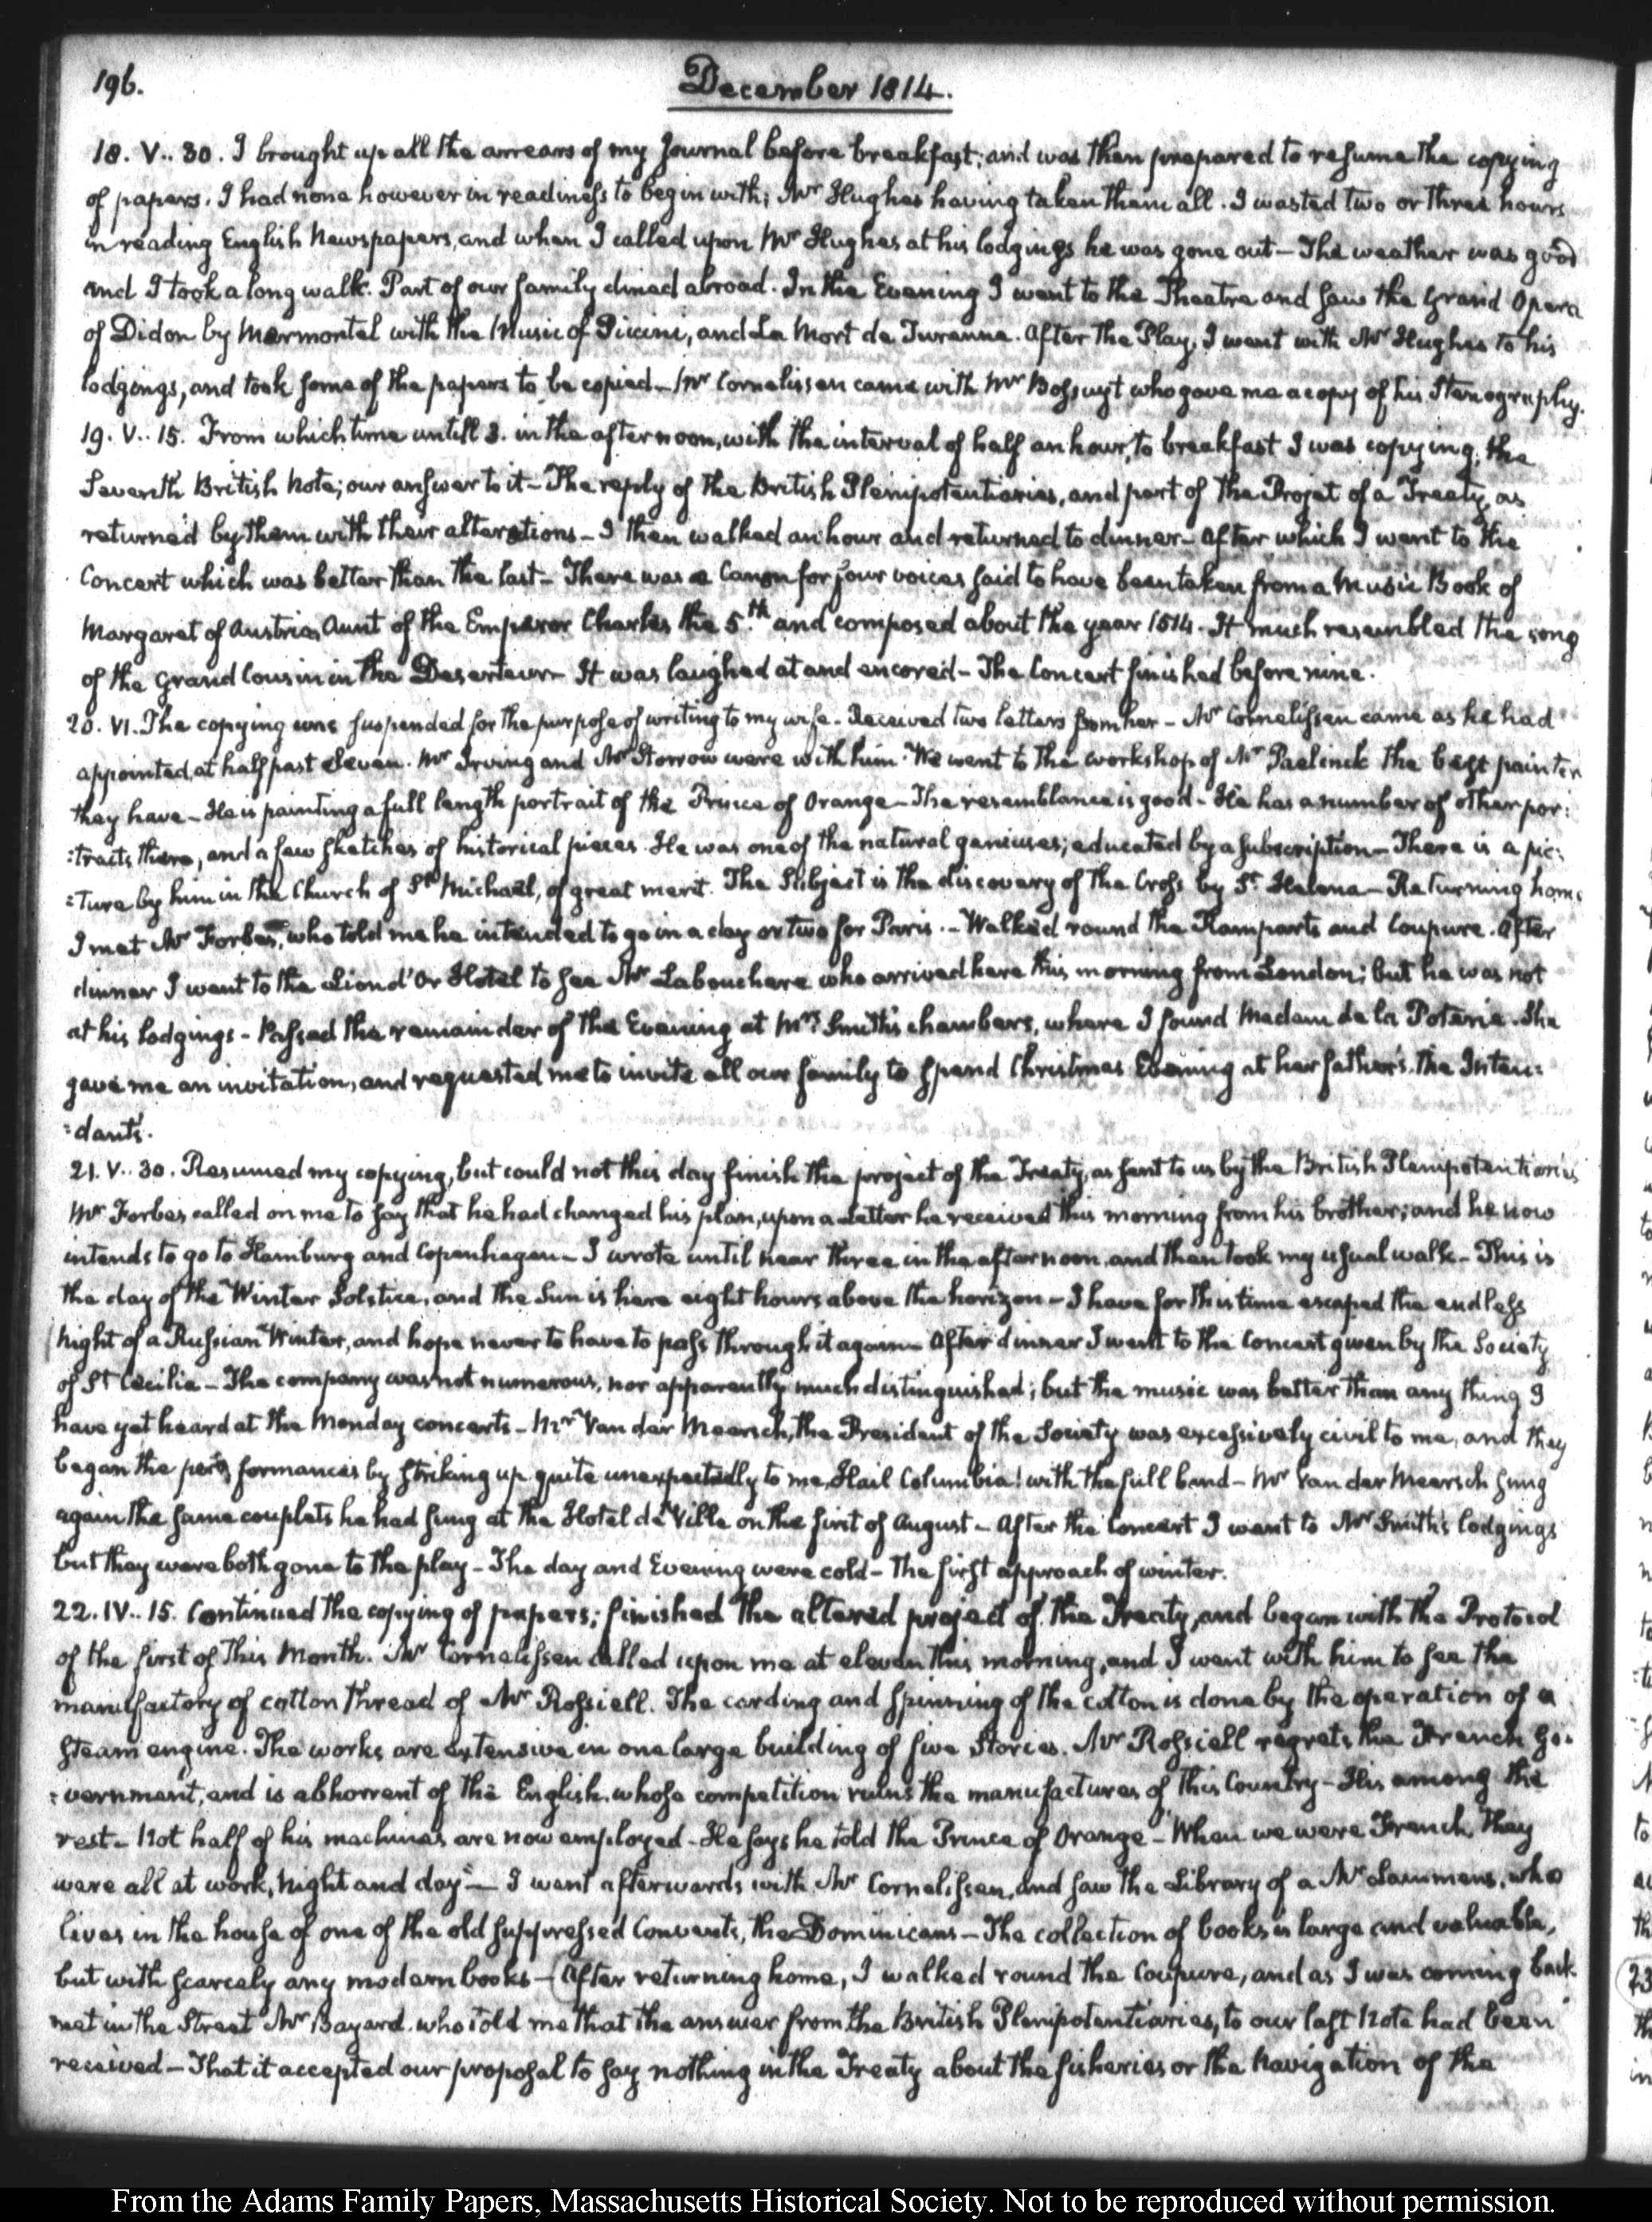 196.
December 1814.
18. V.. 30. I brought up all the arrears of my Journal before breakfast; and was then prepared to resume the copying
of papers. I had none however in readiness to begin with; Mr Hughes having taken them all. I wasted two or three hours
in reading English Newspapers, and when I called upon Mr Hughes at his lodgings he was gone out — The weather was good
and I took a long walk. Part of our family dined abroad. In the Evening I went to the Theatre and saw the Grand Opera
of Didon by Marmontel with the Music of Piccini, and La Mort de Turenne. After the Play, I went with Mr Hughes to his
lodgings, and took some of the papers to be copied — Mr Cornelissen came with Mr Bossuyt who gave me a copy of his Stenography.
19. V.. 15. From which time untill 3. in the afternoon, with the interval of half an hour, to breakfast I was copying, the
Seventh British Note; our answer to it — The reply of the British Plenipotentiaries, and part of the Projet of a Treaty, as
returned by them with their alterations — I then walked an hour and returned to dinner — After which I went to the
Concert which was better than the last — There was a Canon for four voices said to have been taken from a Music Book of
Margaret of Austria, Aunt of the Emperor Charles the 5th and composed about the year 1514. It much resembled the song
of the Grand Cousin in the Deserteur — It was laughed at and encored — The Concert finished before nine.
20. VI. The copying was suspended for the purpose of writing to my wife. Received two letters from her — Mr Cornelissen came as he had
appointed, at half past eleven. Mr Irving and Mr Storrow were with him. We went to the workshop of Mr Paelinck the best painter
they have — He is painting a full length portrait of the Prince of Orange — The resemblance is good — He has a number of other por:
:traits there, and a few sketches of historical pieces. He was one of the natural geniuses; educated by a subscription — There is a pic:
:ture by him in the Church of St Michael, of great merit. The Subject is the discovery of the Cross by St Helena — Returning home
I met Mr Forbes, who told me he intended to go in a day or two for Paris. — Walked round the Ramparts and Coupure. After
dinner I went to the Lion d'Or Hotel to see Mr Labouchere who arrived here this morning from London; but he was not
at his lodgings — Passed the remainder of the Evening at Mrs Smith's chambers, where I found Madam de la Poterie. She
gave me an invitation, and requested me to invite all our family to spend Christmas Evening at her father's. the Inten:
:dant's.
21. V.. 30. Resumed my copying, but could not this day finish the project of the Treaty, as sent to us by the British Plenipotentiaries
Mr Forbes called on me to say that he had changed his plan, upon a Letter he received this morning from his brother; and he now
intends to go to Hamburg and Copenhagen — I wrote until near three in the afternoon, and then took my usual walk — This is
the day of the Winter Solstice, and the Sun is here eight hours above the horizon — I have for this time escaped the endless
Night of a Russian Winter, and hope never to have to pass through it again — After dinner I went to the Concert given by the Society
of St Cecilia — The company was not numerous, nor apparently much distinguished; but the music was better than any thing I
have yet heard at the Monday concerts — Mr Van der Meersch, the President of the Society was excessively civil to me, and they
began the performances by striking up quite unexpectedly to me, Hail Columbia! with the full band — Mr Van der Meersch sung
again the same couplets he had sung at the Hotel de Ville on the first of August — After the Concert I went to Mr Smith's lodgings
but they were both gone to the play — The day and Evening were cold — The first approach of winter.
22. IV.. 15. Continued the copying of papers; finished the altered project of the Treaty, and began with the Protocol
of the first of this Month. Mr Cornelissen called upon me at eleven this morning, and I went with him to see the
manufactory of cotton thread of Mr Rossiell. The carding and spinning of the cotton is done by the operation of a
steam engine. The works are extensive in one large building of five Stories. Mr Rossiell regrets the French Go:
:vernment, and is abhorrent of the English, whose competition ruins the manufactures of this Country — His among the
rest — Not half of his machines are now employed — He says he told the Prince of Orange — "When we were French, they
were all at work, night and day" — I went afterwards with Mr Cornelissen, and saw the Library of a Mr Lammens, who
lives in the house of one of the old suppressed Convents, the Dominicans — The collection of books is large and valuable,
but with scarcely any modern books — After returning home, I walked round the Coupure, and as I was coming back
met in the Street Mr Bayard. who told me that the answer from the British Plenipotentiaries, to our last Note had been
received — That it accepted our proposal to say nothing in the Treaty about the fisheries or the Navigation of the
From the Adams Family Papers, Massachusetts Historical Society. Not to be reproduced without permission.